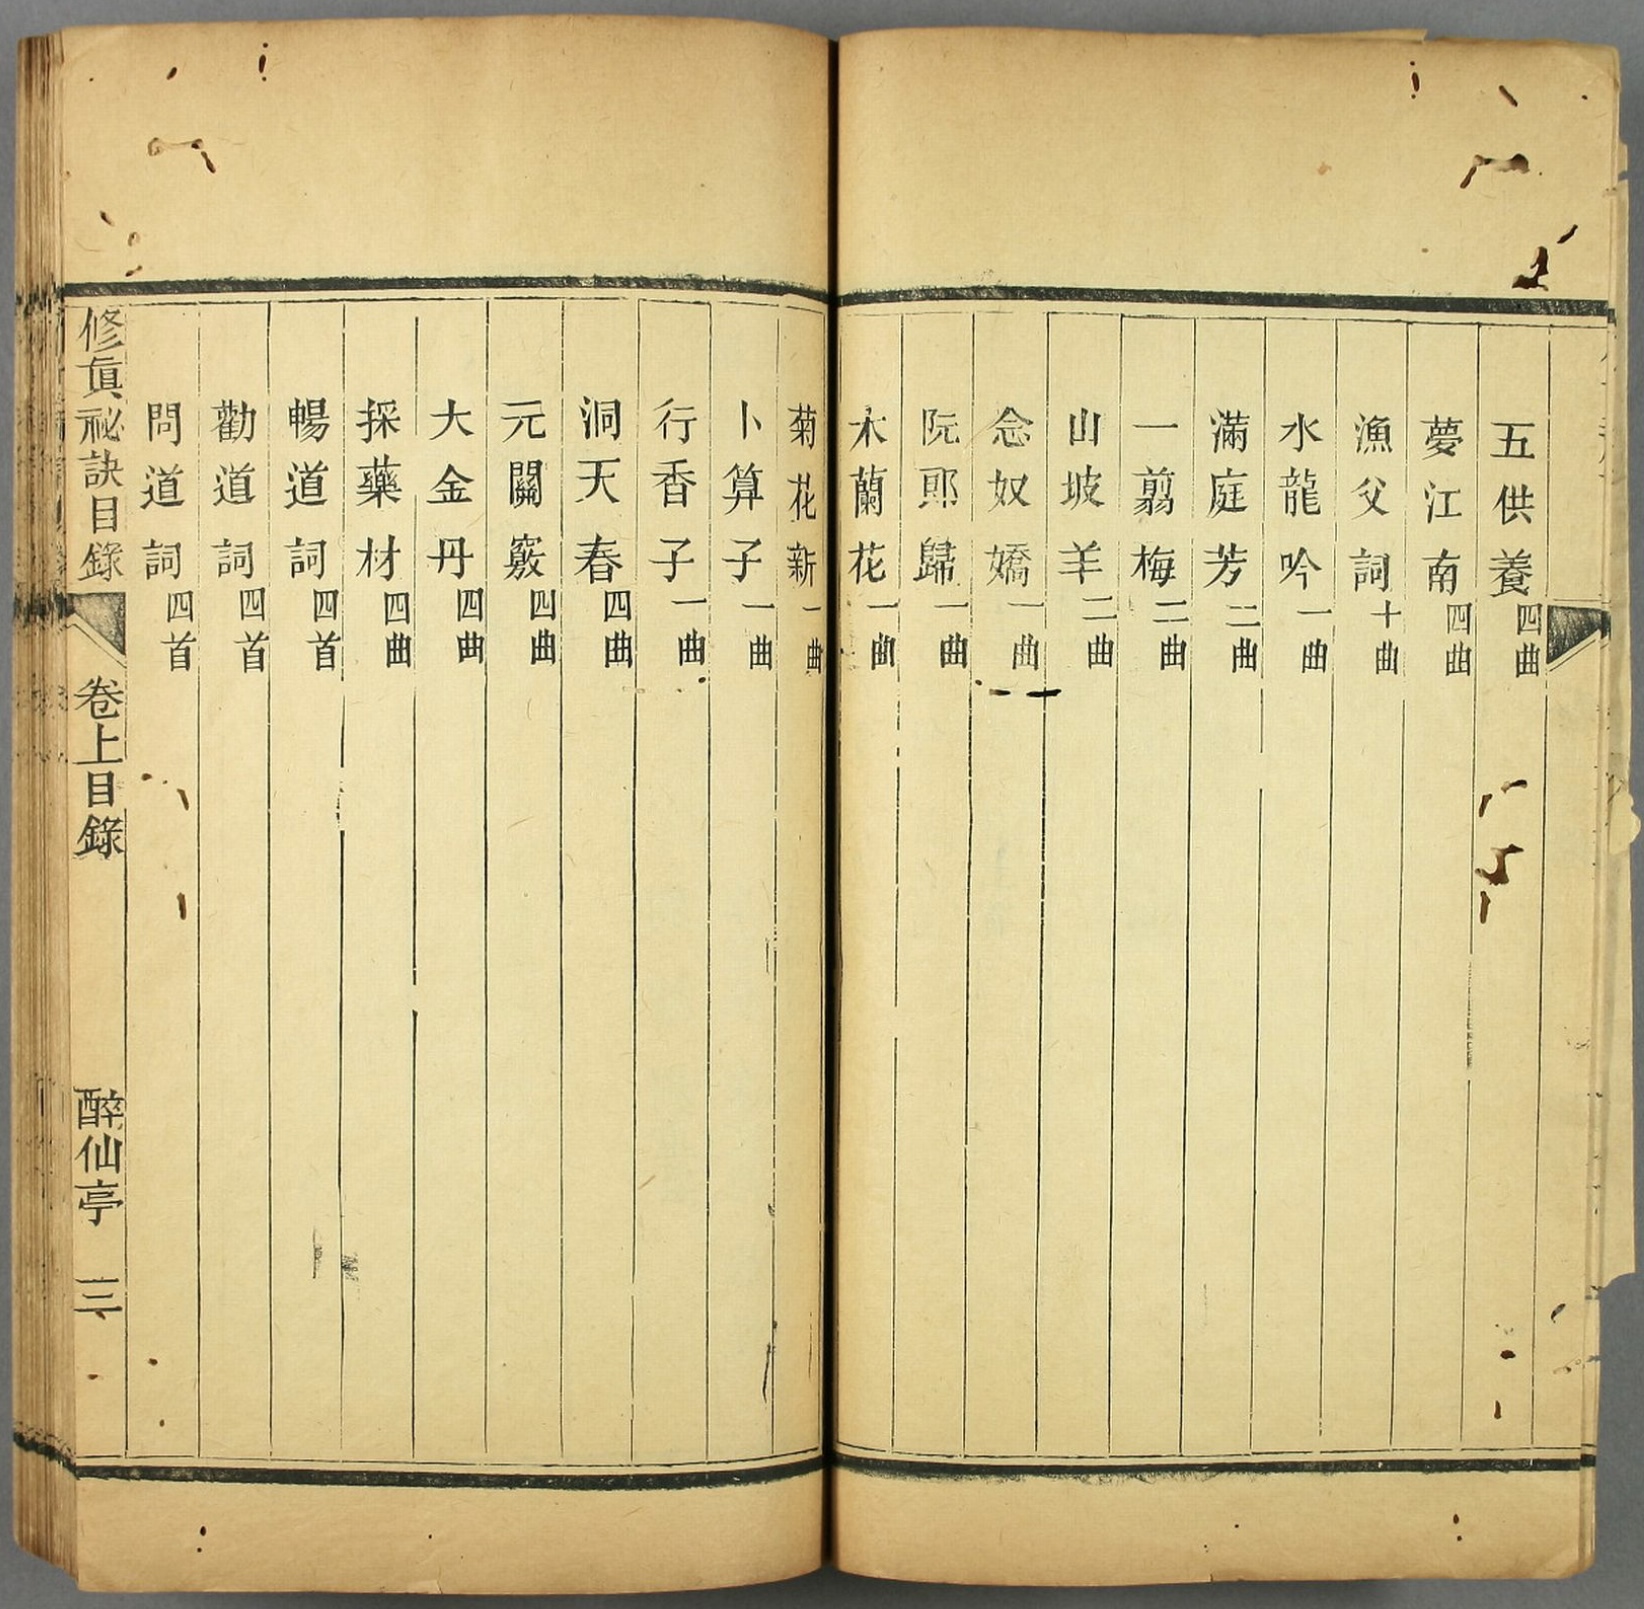 五供養四曲
夢江南四曲
漁父詞十曲
水龍吟一曲
滿庭芳二曲
一翦梅二曲
山坡羊二曲
念奴嬌一曲
阮郎歸一曲
木蘭花一曲
菊花新一曲
卜算子一曲
行香子一曲
洞天春四曲
元關竅四曲
大金丹四曲
採藥材四曲
暢道詞四首
勸道詞四首
問道詞四首
修真祕訣目錄 卷上目錄 醉仙亭 三